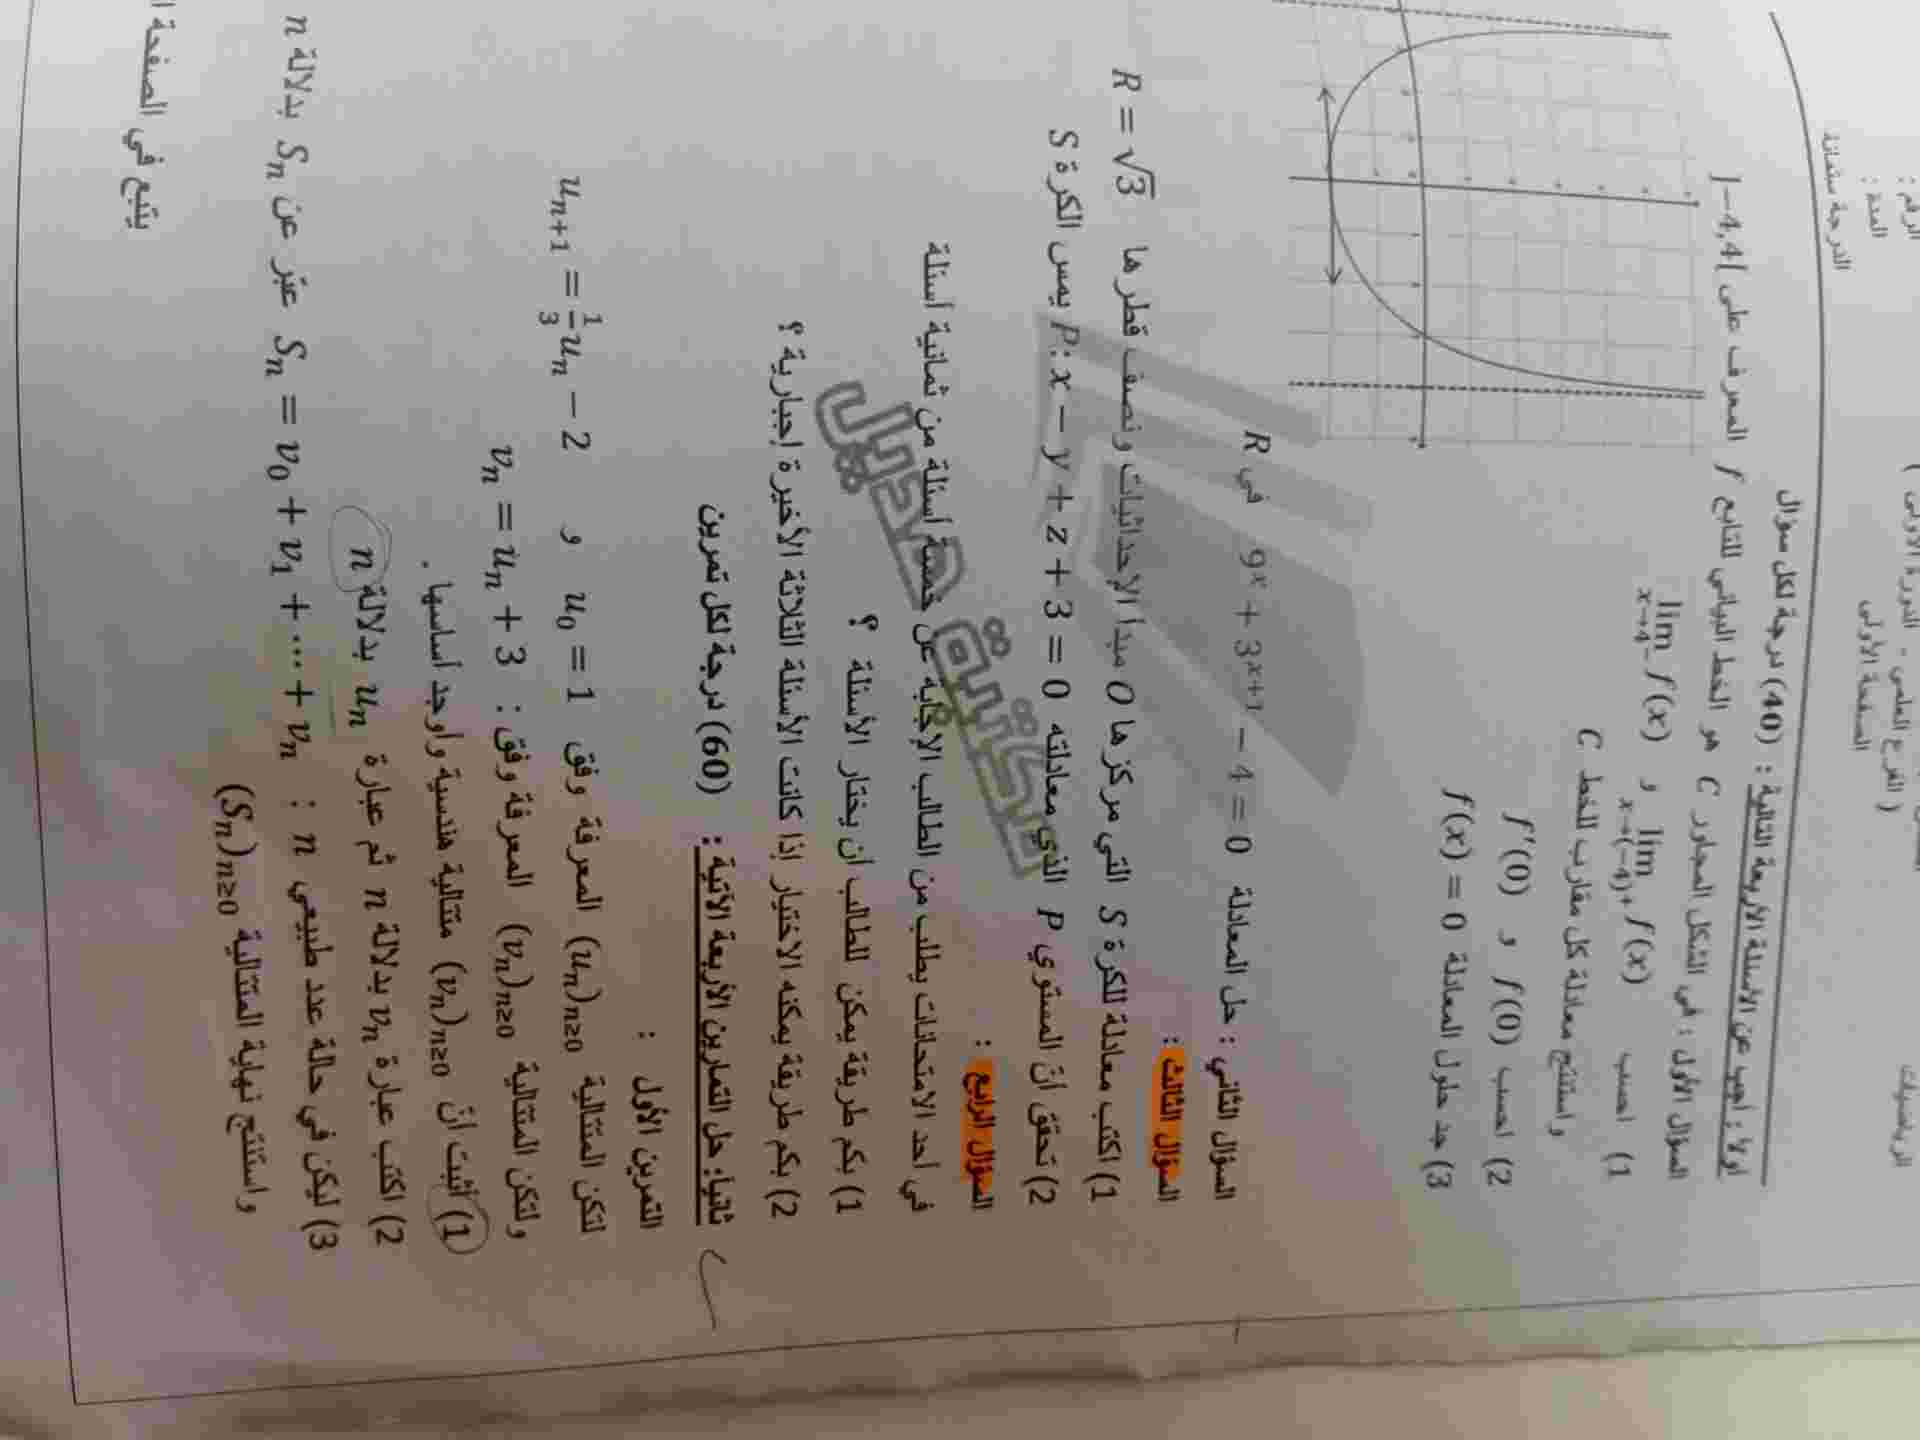 الرياضيات
الدورة الأولى
( الفرع العلمي -
الصفحة الأولى
الرقم :
المدة :
الدرجة ستمائة
أولاً : أجب عن الأسئلة الأربعة التالية : (40) درجة لكل سؤال
السؤال الأول : في الشكل المجاور C هو الخط البياني للتابع f المعرف على ]-4,4[
1) احسب lim x→(-4)+ f(x) و lim x→4- f(x)
واستنتج معادلة كل مقارب للخط C
2) احسب f(0) و f'(0)
3) جد حلول المعادلة f(x) = 0
السؤال الثاني : حل المعادلة 9^x + 3^(x+1) - 4 = 0 في R
السؤال الثالث :
1) اكتب معادلة للكرة S التي مركزها O مبدأ الإحداثيات ونصف قطرها R = √3
2) تحقق أنّ المستوي P الذي معادلته P: x - y + z + 3 = 0 يمس الكرة S
السؤال الرابع :
في أحد الامتحانات يطلب من الطالب الإجابة عن خمسة أسئلة من ثمانية أسئلة
1) بكم طريقة يمكن للطالب أن يختار الأسئلة ؟
2) بكم طريقة يمكنه الاختيار إذا كانت الأسئلة الثلاثة الأخيرة إجبارية ؟
ثانياً: حل التمارين الأربعة الآتية : (60) درجة لكل تمرين
التمرين الأول :
لتكن المتتالية (u_n)_{n≥0} المعرفة وفق u_0 = 1 و u_{n+1} = 1/3 u_n - 2
ولتكن المتتالية (v_n)_{n≥0} المعرفة وفق : v_n = u_n + 3
1) أثبت أنّ (v_n)_{n≥0} متتالية هندسية وأوجد أساسها .
2) اكتب عبارة v_n بدلالة n ثم عبارة u_n بدلالة n
3) ليكن في حالة عدد طبيعي n : S_n = v_0 + v_1 + ⋯ + v_n عبّر عن S_n بدلالة n
واستنتج نهاية المتتالية (S_n)_{n≥0}
يتبع في الصفحة
مكتبة هديل